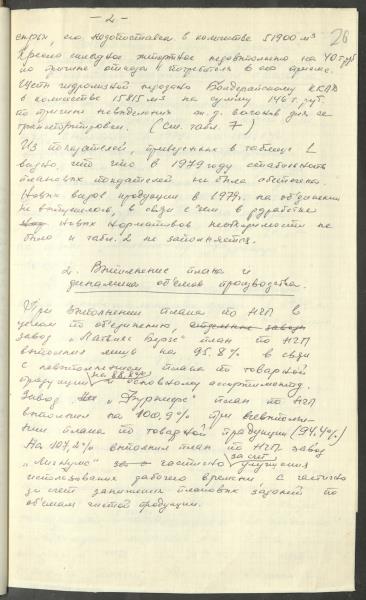 — 2 —
26
спрын, его недопоставлен в количестве 51900 м³
Кресло складное импортное невыполнено на 40 т.руб
по причине отказа потребителя в его приеме.
Щепы гидролизной передано Болдерайскому ККДП
в количестве 15815 м³ на сумму 146 т. руб.
по причине невыделения ж.д. вагонов для ее
транспортировки. (См. табл. 7)
Из показателей, приведенных в таблице 1
видно, что в 1979 году стабильность
плановых показателей не была обеспечена.
Новых видов продукции в 1979 г. на объединении
не выпускалось, в связи с чем в разработке
новых нормативов необходимости не
было и табл. 2 не заполняется.
2. Выполнение плана и
динамика объемов производства.
При выполнении плана по НЧП в
целом по объединению, отдельные заводы
завод „Латвияс Берзс" план по НЧП
выполнил лишь на 95.8% в связи
с невыполнением плана по товарной
продукции на 88.8% и основному ассортименту.
Завод „Фурниерс" план по НЧП
выполнил на 100,9% при невыполне-
нии плана по товарной продукции (94.4%)
На 107,2% выполнил план по НЧП завод
„Лигнумс" за счет частично улучшения
использования рабочего времени, а частично
за счет занижения плановых заданий по
объемам чистой продукции.